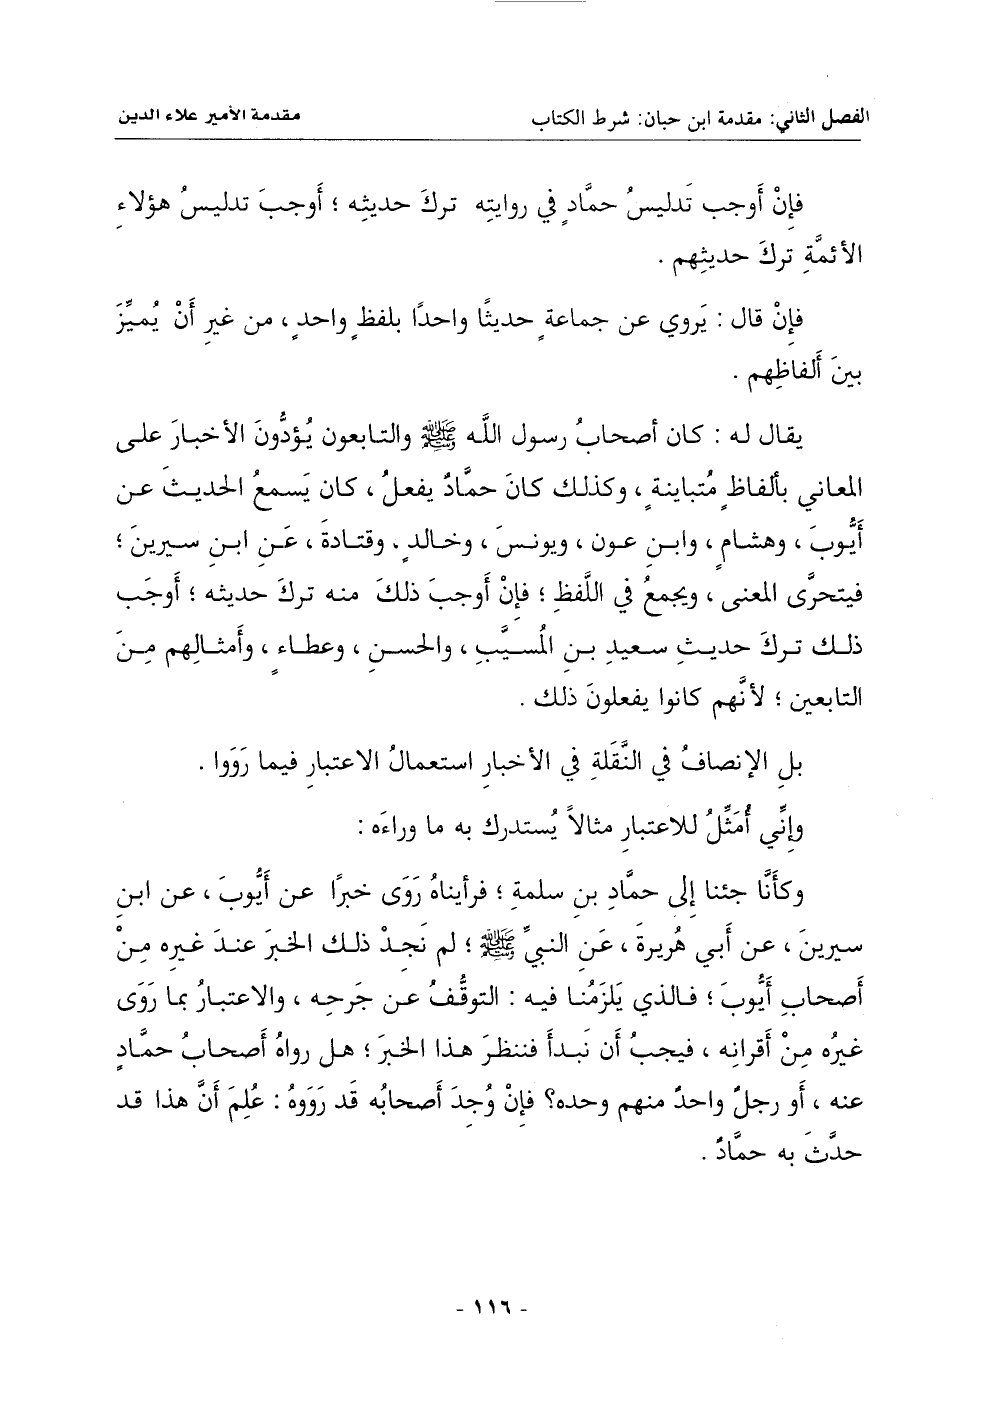 الفصل الثاني: مقدمة ابن حبان: شرط الكتاب مقدمة الأمير علاء الدين
فإنْ أَوجب تَدليسُ حمَّادٍ في روايتِه تركَ حديثِه ؛ أَوجبَ تدليسُ هؤلاءِ
الأئمَّةِ تركَ حديثِهم .
فإنْ قال : يَروي عن جماعةٍ حديثًا واحدًا بلفظٍ واحدٍ ، من غيرِ أَنْ يُميِّزَ
بينَ أَلفاظِهم .
يقال له : كان أصحابُ رسول اللَّه ﷺ والتابعون يُؤدُّونَ الأخبارَ على
المعاني بألفاظٍ مُتباينةٍ ، وكذلك كانَ حمَّادٌ يفعلُ ، كان يَسمعُ الحديثَ عن
أَيُّوبَ ، وهشامٍ ، وابنِ عون ، ويونسَ ، وخالدٍ . وقتادةَ ، عَنِ ابنِ سيرينَ ؛
فيتحرَّى المعنى ، ويجمعُ في اللَّفظِ ؛ فإنْ أَوجبَ ذلكَ منه تركَ حديثه ؛ أَوجَب
ذلك تركَ حديثِ سعيدِ بنِ المُسيَّبِ ، والحسنِ ، وعطاءٍ ، وأمثالِهم مِنَ
التابعين ؛ لأنَّهم كانوا يفعلونَ ذلك .
بلِ الإنصافُ في النَّقَلةِ في الأخبارِ استعمالُ الاعتبارِ فيما رَوَوا .
وإنِّي أُمَثِّلُ للاعتبارِ مثالاً يُستدرك به ما وراءَه :
وكأنَّا جئنا إلى حمَّادِ بن سلمةِ ؛ فرأيناهُ رَوَى خبرًا عن أَيُّوبَ ، عن ابنِ
سيرينَ ، عن أَبي هُريرةَ ، عَنِ النبيِّ ﷺ ؛ لم نَجدْ ذلك الخبرَ عندَ غيره مِنْ
أَصحابِ أَيُّوبَ ؛ فالذي يَلزَمُنا فيه : التوقُّفُ عن جَرحِه ، والاعتبارُ بما رَوَى
غيرُه مِنْ أقرانِه ، فيجبُ أن نَبدأَ فننظرَ هذا الخبرَ ؛ هل رواهُ أَصحابُ حمَّادٍ
عنه ، أَو رجلٌ واحدٌ منهم وحده؟ فإنْ وُجِدَ أصحابُه قَد رَوَوهُ : عُلِمَ أَنَّ هذا قد
حدَّثَ به حمَّادٌ .
- ١١٦ -